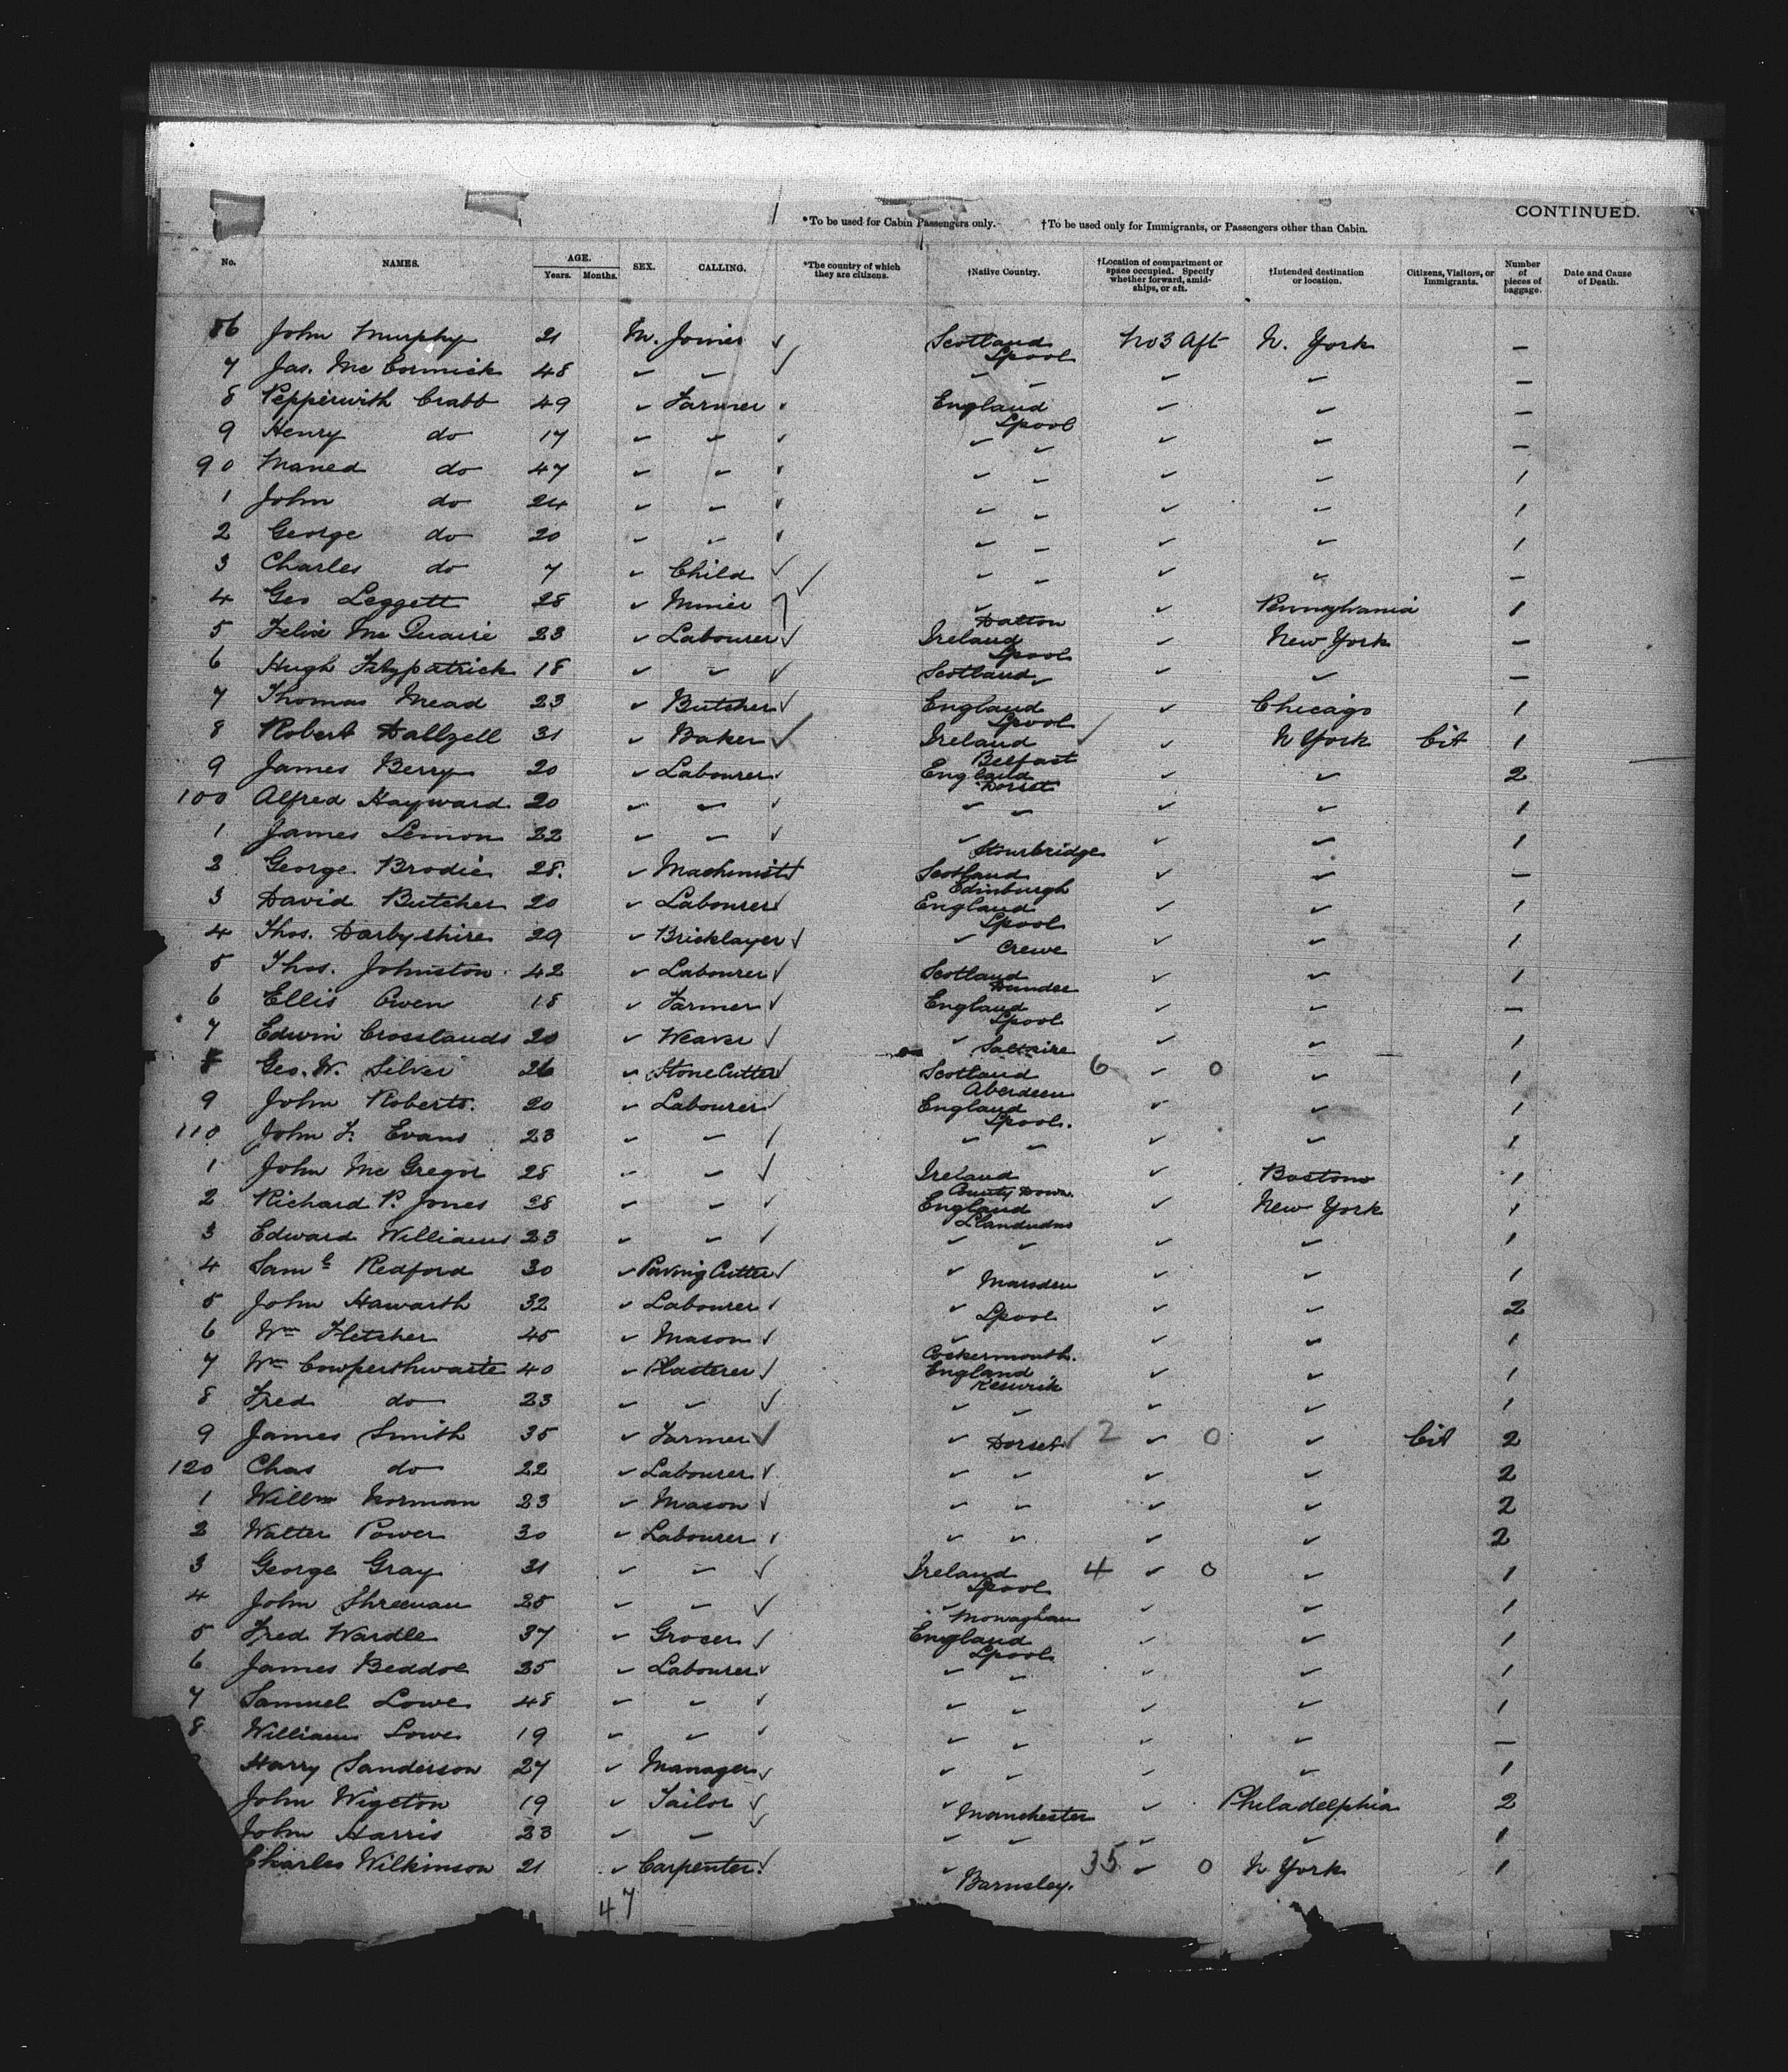 CONTINUED.
*To be used for Cabin Passengers only. †To be used only for Immigrants, or Passengers other than Cabin.
No. NAMES. AGE. Years. Months. SEX. CALLING. *The country of which they are citizens. †Native Country. †Location of compartment or space occupied. Specify whether forward, amid-ships, or aft. †Intended destination or location. Citizens, Visitors, or Immigrants. Number of pieces of baggage. Date and Cause of Death.
86 John Murphy 21 M. Joiner ✓ Scotland Lpool No3 Aft N. York —
7 Jas. Mc Cormick 48 ✓ ✓ ✓ ✓ ✓ ✓ ✓ —
8 Pepperwith Crabb 49 ✓ Farmer England Lpool ✓ ✓ —
9 Henry do 17 ✓ ✓ ✓ ✓ ✓ ✓ ✓ —
90 Maned do 47 ✓ ✓ ✓ ✓ ✓ ✓ ✓ 1
1 John do 24 ✓ ✓ ✓ ✓ ✓ ✓ ✓ 1
2 George do 20 ✓ ✓ ✓ ✓ ✓ ✓ ✓ 1
3 Charles do 7 ✓ Child ✓ ✓ ✓ ✓ ✓ —
4 Geo Leggett 28 ✓ Miner ✓ ✓ Dalton ✓ Pennsylvania 1
5 Felix Mc Quaire 23 ✓ Labourer ✓ Ireland Lpool ✓ New York —
6 Hugh Fitzpatrick 18 ✓ ✓ ✓ Scotland ✓ ✓ ✓ —
7 Thomas Mead 23 ✓ Butcher ✓ England Lpool ✓ Chicago 1
8 Robert Dallzell 31 ✓ Baker ✓ Ireland Belfast ✓ ✓ N York Cit 1
9 James Berry 20 ✓ Labourer ✓ England Dorset ✓ ✓ 2
100 Alfred Hayward 20 ✓ ✓ ✓ ✓ ✓ ✓ ✓ 1
1 James Lemon 22 ✓ ✓ ✓ ✓ Stourbridge ✓ ✓ 1
2 George Brodie 28. ✓ Machinist ✓ Scotland Edinburgh ✓ ✓ —
3 David Butcher 20 ✓ Labourer ✓ England Lpool ✓ ✓ 1
4 Thos. Darbyshire 29 ✓ Bricklayer ✓ ✓ Crewe ✓ ✓ 1
5 Thos. Johnston 42 ✓ Labourer ✓ Scotland Dundee ✓ ✓ 1
6 Ellis Owen 18 ✓ Farmer ✓ England Lpool ✓ ✓ —
7 Edwin Crosslands 20 ✓ Weaver ✓ ✓ Saltaire ✓ ✓ 1
8 Geo. W. Silver 26 ✓ Stone Cutter ✓ Scotland Aberdeen 6 ✓ 0 ✓ 1
9 John Roberts. 20 ✓ Labourer ✓ England Lpool. ✓ ✓ 1
110 John F. Evans 23 ✓ ✓ ✓ ✓ ✓ ✓ ✓ 1
1 John Mc Gregor 28 ✓ ✓ ✓ Ireland County Down. ✓ Boston 1
2 Richard P. Jones 28 ✓ ✓ ✓ England Llandudno ✓ New York 1
3 Edward Williams 23 ✓ ✓ ✓ ✓ ✓ ✓ ✓ 1
4 Saml Redford 30 ✓ Paving Cutter ✓ ✓ Marsden ✓ ✓ 1
5 John Haworth 32 ✓ Labourer ✓ ✓ Lpool ✓ ✓ 2
6 Wm Fletcher 45 ✓ Mason ✓ ✓ Cockermouth. ✓ ✓ 1
7 Wm Cowperthwaite 40 ✓ Plasterer ✓ England Keswick ✓ ✓ 1
8 Fred do 23 ✓ ✓ ✓ ✓ ✓ ✓ ✓ 1
9 James Smith 35 ✓ Farmer ✓ ✓ Dorset ✓ 2 ✓ 0 ✓ Cit 2
120 Chas do 22 ✓ Labourer ✓ ✓ ✓ ✓ ✓ 2
1 Willm Norman 23 ✓ Mason ✓ ✓ ✓ ✓ ✓ 2
2 Walter Power 30 ✓ Labourer ✓ ✓ ✓ ✓ ✓ 2
3 George Gray 31 ✓ ✓ ✓ Ireland Lpool 4 ✓ 0 ✓ 1
4 John Shreenan 25 ✓ ✓ ✓ ✓ Monaghan ✓ ✓ 1
5 Fred Wardle 37 ✓ Grocer ✓ England Lpool ✓ ✓ 1
6 James Beddoe 25 ✓ Labourer ✓ ✓ ✓ ✓ ✓ 1
7 Samuel Lowe 48 ✓ ✓ ✓ ✓ ✓ ✓ ✓ 1
8 William Lowe 19 ✓ ✓ ✓ ✓ ✓ ✓ ✓ —
Harry Sanderson 27 ✓ Manager ✓ ✓ ✓ ✓ ✓ 1
John Wigton 19 ✓ Tailor ✓ ✓ Manchester ✓ Philadelphia 2
John Harris 23 ✓ ✓ ✓ ✓ ✓ ✓ ✓ 1
Charles Wilkinson 21 ✓ Carpenter ✓ ✓ Barnsley. 35 ✓ 0 N York 1
47